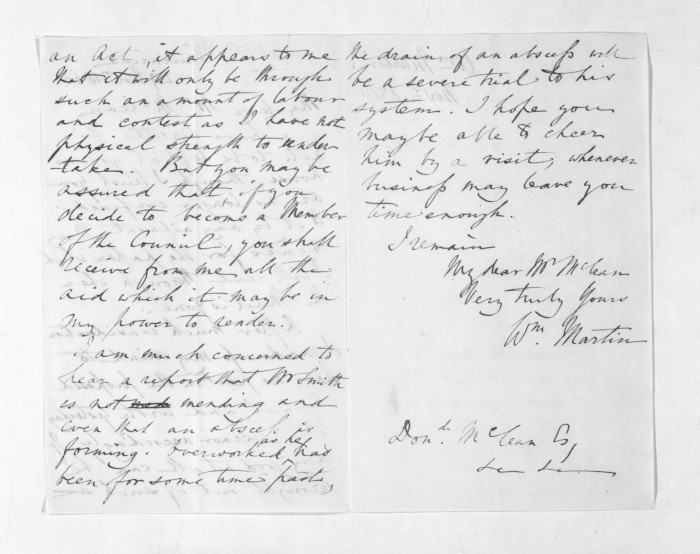 an Act, it appears to me
that it will only be through
such an amount of labour
and contest as I have not
physical strength to under-
take. But you may be
assured that if you
decide to become a Member
of the Council, you shall
receive from me all the
aid which it may be in
my power to render.
I am much concerned to
hear a report that Mr Smith
is not mending and
even that an abscess is
forming. Overworked as he has
been for some time past,
the drain of an abscess will
be a severe trial to his
system. I hope you
may be able to cheer
him by a visit, whenever
business may leave you
time enough.
I remain
My dear Mr McLean
Very truly Yours
Wm. Martin
Dond. McLean Esq,